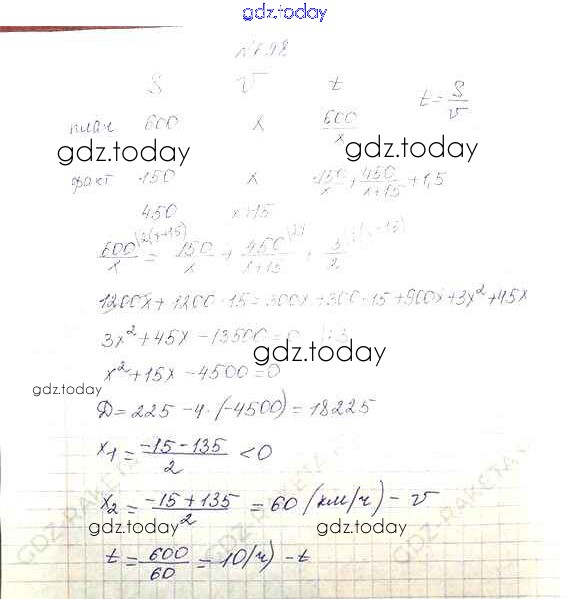 gdz.today
№798
S v t
t = S/v
план 600 x 600/x
gdz.today gdz.today
факт 150 x 150/x + 450/(x+15) + 1,5
450 x+15
600/x = 150/x + 450/(x+15) + 3/2
1200x + 1200·15 = 300x + 300·15 + 900x + 3x² + 45x
3x² + 45x - 13500 = 0 |:3
gdz.today
x² + 15x - 4500 = 0
gdz.today
D = 225 - 4·(-4500) = 18225
x₁ = (-15-135)/2 < 0
x₂ = (-15+135)/2 = 60 (км/ч) - v
gdz.today gdz.today
t = 600/60 = 10(ч) - t